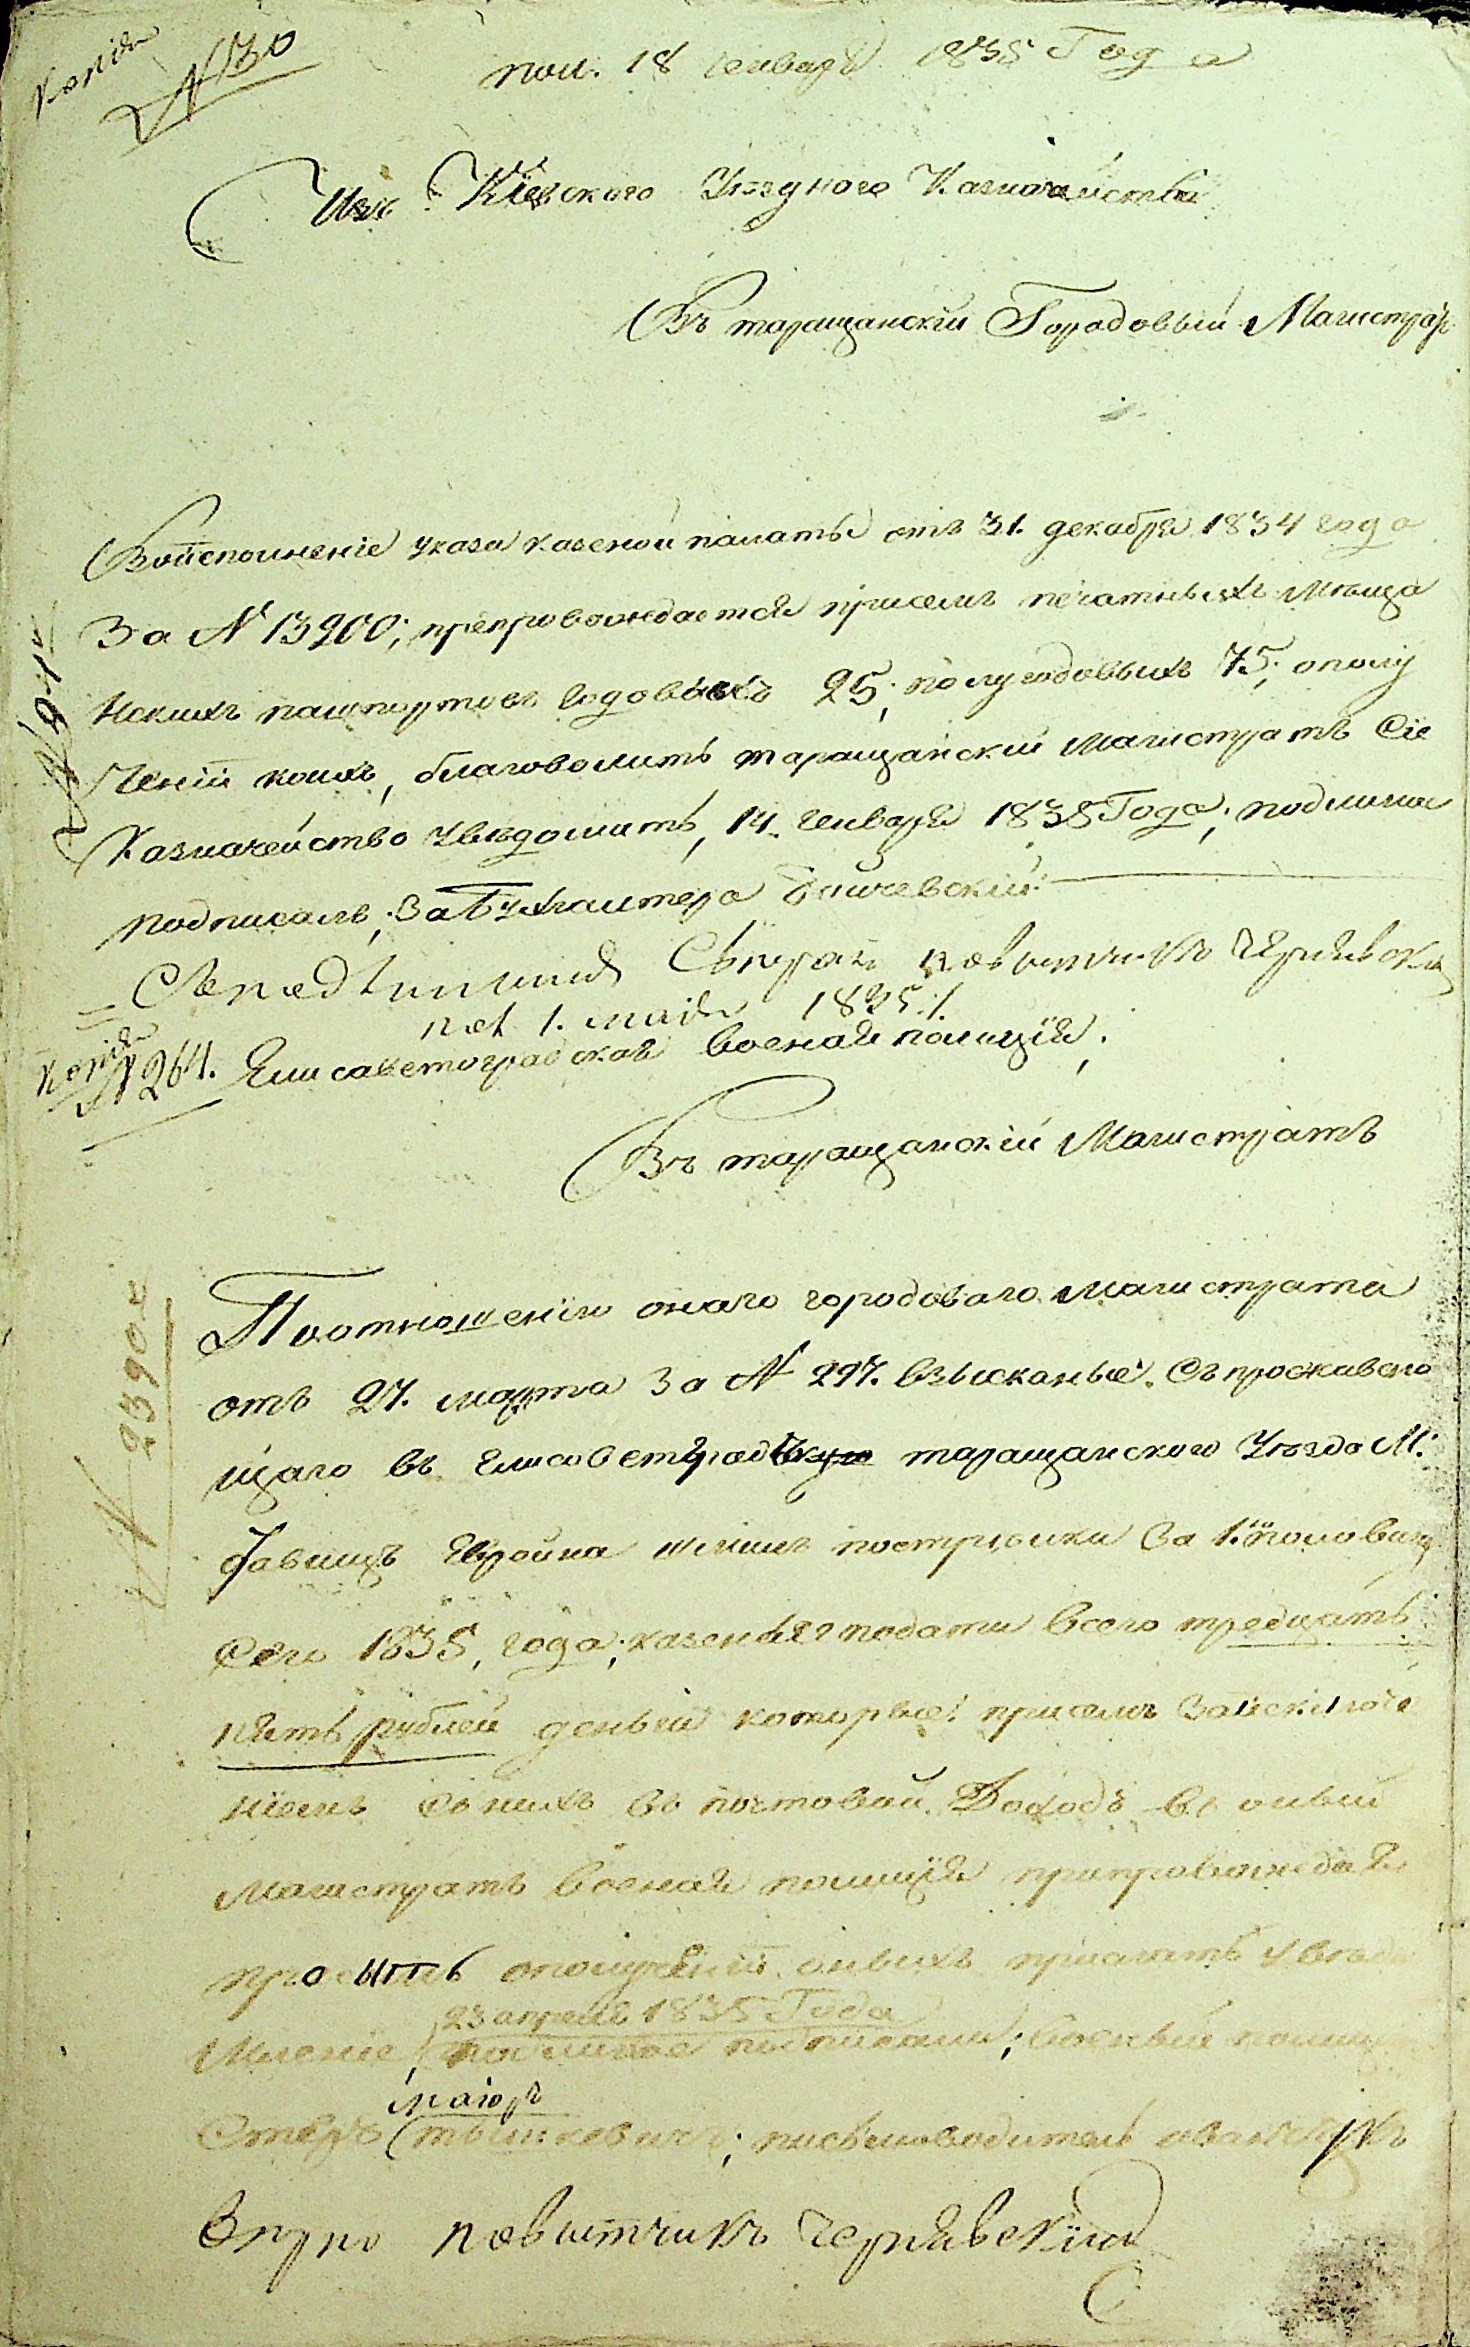 Копія
№ 130
пол. 18 генваря 1835 Года
Изъ Кіевского Уезднаго Казначейства
Въ таращанскій Городовый Магистрат
Воисполненіе указа казеной палаты отъ 31. декабря 1834 года
За № 13900; препровождается присемъ печатныхъ мѣща
нскихъ пашпортовъ годовыхъ 25, полугодовыхъ 75, ополу
ченіи коихъ, благоволитъ таращанскій магистратъ Сіе
Казначейство Увѣдомить, 14. генваря 1835 Года; подлинна
подписалъ; За Бухгалтера
Сьподлинимъ повытчикъ Чернявскій
пол 1. маія 1835.
Копія
№ 264. Елисаветоградская военая полиція;
Въ таращанскій Магистратъ
Поотношенію онаго городоваго магистрата
отъ 27. марта За № 297. взысканые съ прожываю
щаго въ Елисаветград таращанского Уезда М:
за 1:ю половину
сего 1835, года; податми всего тредцать
пять рублей деньги которые присемъ Заисключе
ніемъ съ нихъ въ почтовый Доходъ въ оный
магистратъ военая полиція припровождая
просытъ ополученіи оныхъ прислать увѣдо
23 апреля 1835 Года
мленіе, подлиное подписали; военый полиц
маіоръ
письмоводитель
Вѣрно повытчикъ Чернявскій
№ 2390